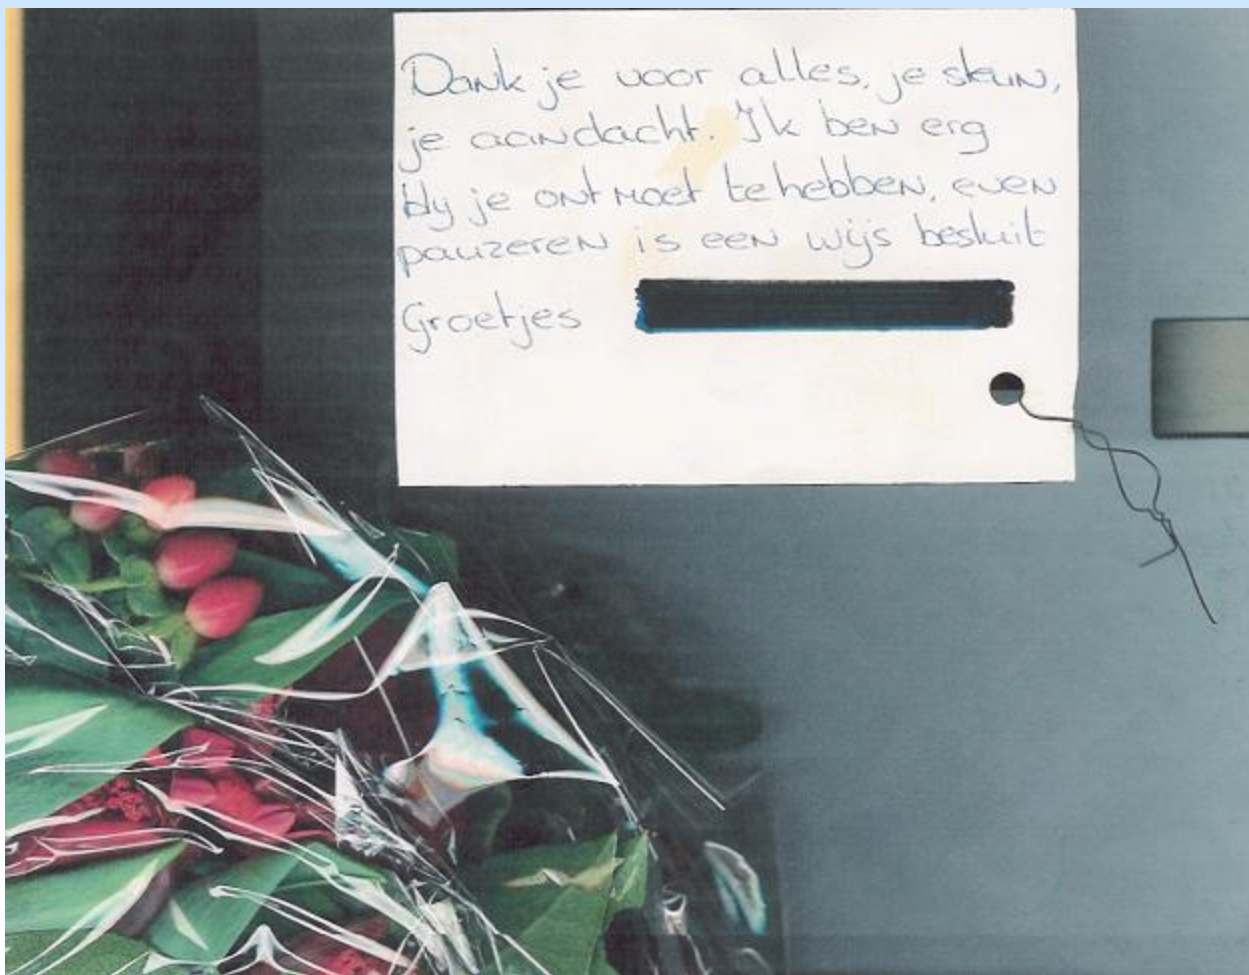 Dank je voor alles, je steun,
je aandacht. Ik ben erg
bly je ontmoet te hebben, even
pauzeren is een wijs besluit
Groetjes